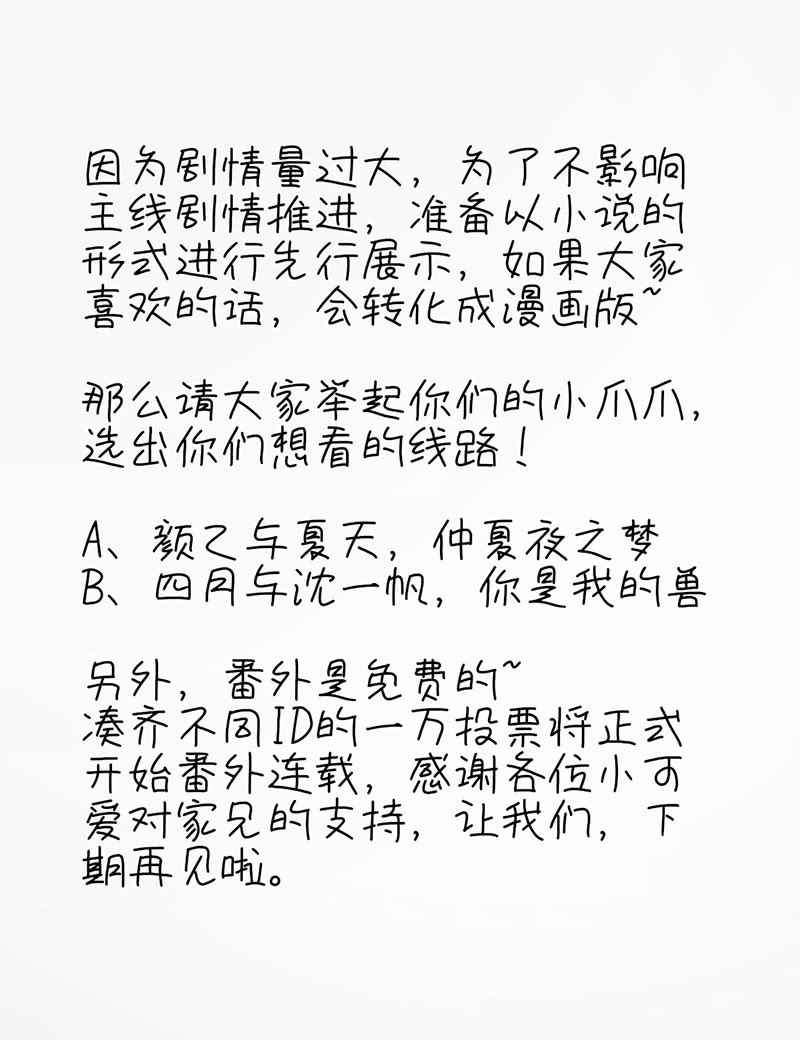 因为剧情量过大，为了不影响
主线剧情推进，准备以小说的
形式进行先行展示，如果大家
喜欢的话，会转化成漫画版~
那么请大家举起你们的小爪爪，
选出你们想看的线路！
A、颜乙与夏天，仲夏夜之梦
B、四月与沈一帆，你是我的兽
另外，番外是免费的~
凑齐不同ID的一万投票将正式
开始番外连载，感谢各位小可
爱对家兄的支持，让我们，下
期再见啦。